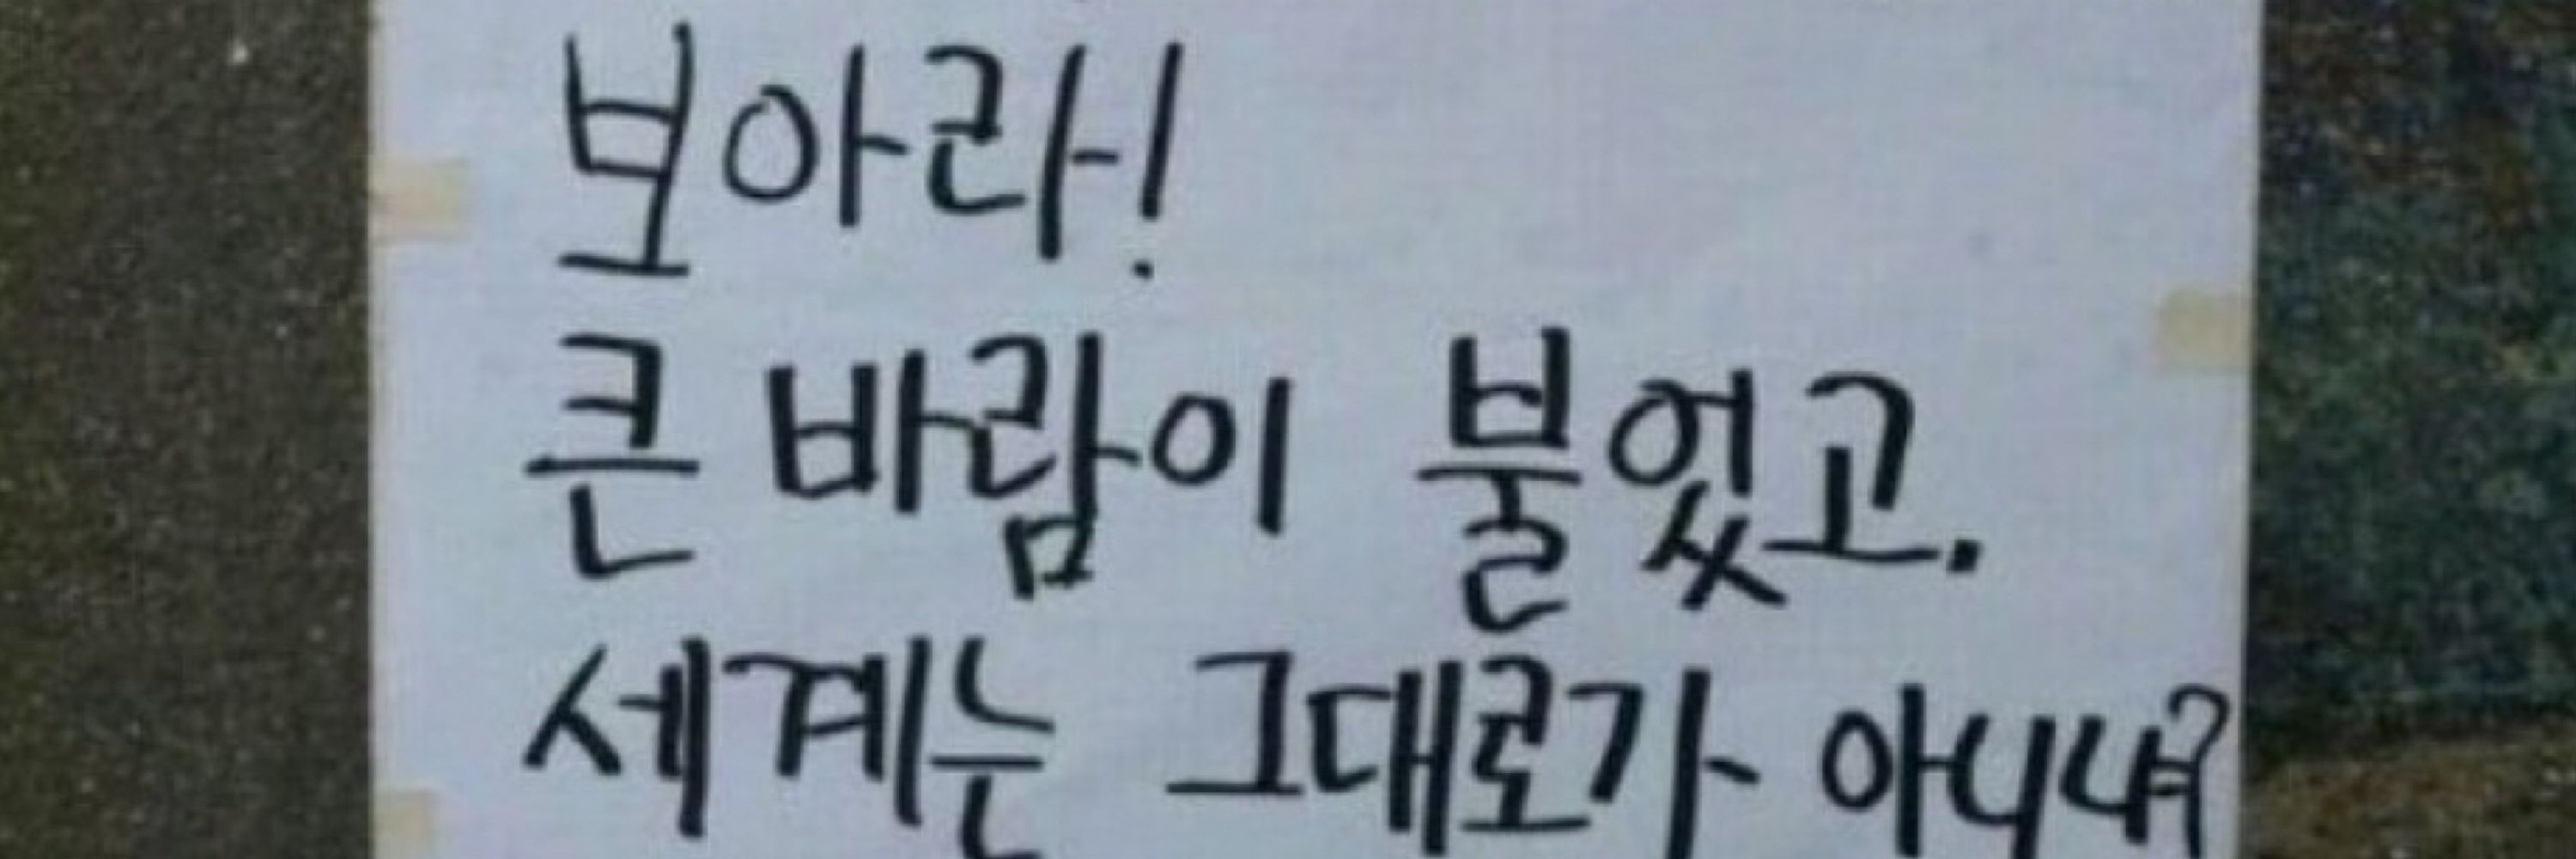 보아라!
큰 바람이 불었고.
세계는 그대로가 아니냐?